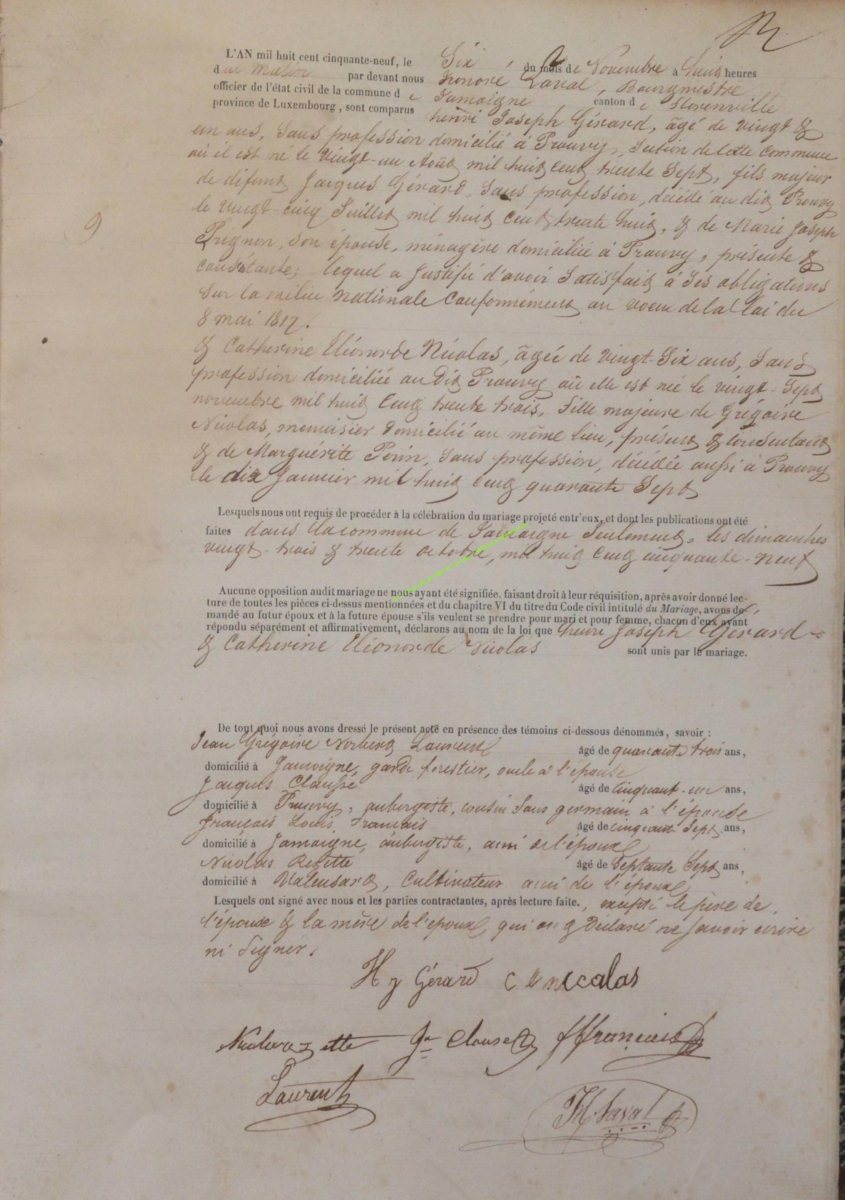 L'AN mil huit cent cinquante-neuf, le Six du mois de Novembre à huit heures
du matin par devant nous honoré Laval, Bourgmestre
officier de l'état civil de la commune de Jamoigne canton de Florenville
province de Luxembourg, sont comparus henri Joseph Gérard, âgé de vingt &
un ans, Sans profession domicilié à Prouvy, Section de cette commune
où il est né le vingt-un Août mil huit cent trente Sept, fils majeur
de défunt Jacques Gérard, Sans profession, décédé au dit Prouvy
le vingt-cinq Juillet mil huit cent trente huit, & de Marie Joseph
Pregnon, Son épouse, ménagère domiciliée à Prouvy, présente &
consentante; lequel a Justifié d'avoir Satisfait à Ses obligations
Sur la milice nationale Conformément au voeu de la loi du
8 mai 1817.
9
& Catherine Eléonorde Nicolas, âgée de vingt-Six ans, Sans
profession domiciliée au Dit Prouvy où elle est née le vingt-Sept
novembre mil huit Cent trente trois, fille majeure de Grégoire
Nicolas, menuisier domicilié au même lieu, présent & consentant
& de Marguérite Perin, Sans profession, décédée aussi à Prouvy
le dix Janvier mil huit Cent quarante Sept
Lesquels nous ont requis de procéder à la célébration du mariage projeté entr'eux, et dont les publications ont été
faites dans la commune de Jamoigne Seulement, les dimanches
vingt-trois & trente octobre, mil huit Cent cinquante-neuf
Aucune opposition audit mariage ne nous ayant été signifiée, faisant droit à leur réquisition, après avoir donné lec-
ture de toutes les pièces ci-dessus mentionnées et du chapitre VI du titre du Code civil intitulé du Mariage, avons de-
mandé au futur époux et à la future épouse s'ils veulent se prendre pour mari et pour femme, chacun d'eux ayant
répondu séparément et affirmativement, déclarons au nom de la loi que henri Joseph Gérard
& Catherine Eléonorde Nicolas sont unis par le mariage.
De tout quoi nous avons dressé le présent acte en présence des témoins ci-dessous dénommés, savoir :
Jean Grégoire Norbert Laurent âgé de quarante trois ans,
domicilié à Jamoigne, garde forestier, oncle à l'épouse
Jacques Clausse âgé de cinquant-un ans,
domicilié à Prouvy, aubergiste, cousin Sous germain à l'épouse
François Louis, François âgé de cinquante Sept ans,
domicilié à Jamoigne, aubergiste, ami de l'époux
Nicolas Rezette âgé de Septante Sept ans,
domicilié à Valansart, Cultivateur ami de l'époux
Lesquels ont signé avec nous et les parties contractantes, après lecture faite., excepté le père de
l'épouse & la mère de l'époux, qui ont Déclaré ne Savoir écrire
ni Signer.
H J Gérard C E nicolas
Nicolas rezette Jn Clausse FLFrançois
Laurent H Laval